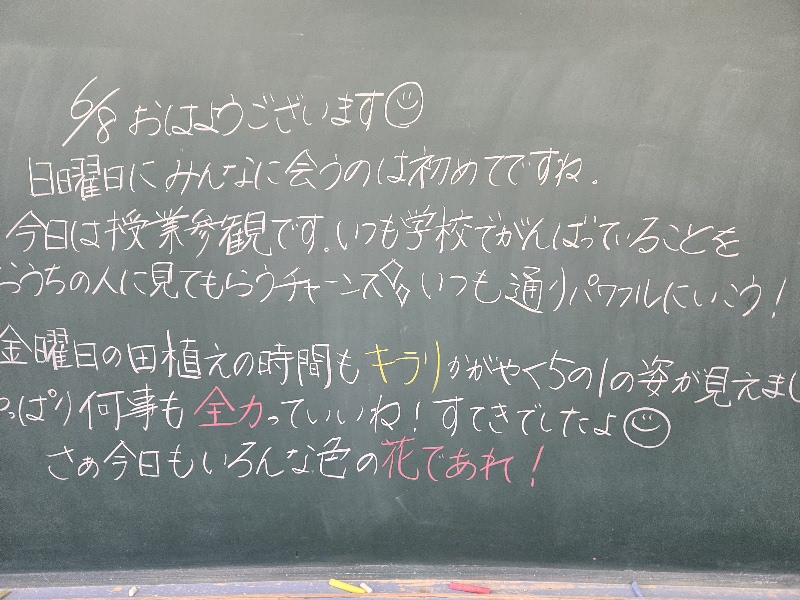 6/8 おはようございます
日曜日にみんなに会うのは初めてですね.
今日は授業参観です.いつも学校でがんばっていることを
おうちの人に見てもらうチャーンス いつも通りパワフルにいこう!
金曜日の田植えの時間もキラリかがやく5の1の姿が見えまし
っぱり何事も全力っていいね!すてきでしたよ
さぁ今日もいろんな色の花であれ!